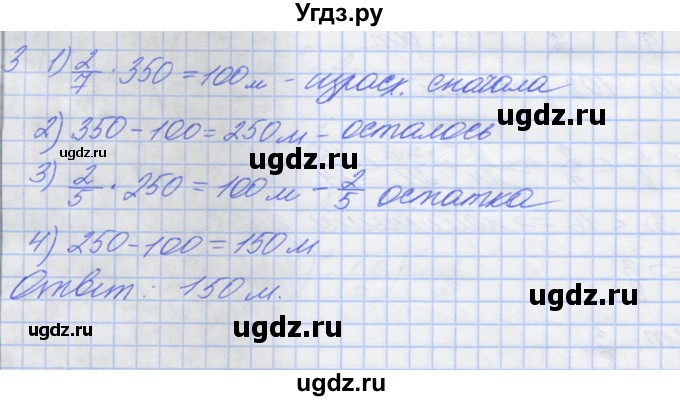 Угдз.ру
3 1) 2/7 · 350 = 100 м - израсх. сначала
ugdz.ru
2) 350 - 100 = 250 м - осталось
ugdz.ru
ugdz.ru
3) 2/5 · 250 = 100 м - 2/5 остатка
ugdz.ru
4) 250 - 100 = 150 м
Ответ: 150 м.
ugdz.ru
ugdz.ru
ugdz.ru
ugdz.ru